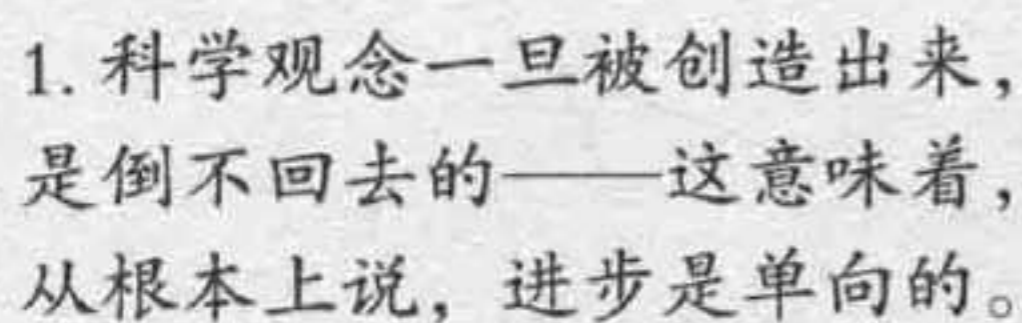 1. 科学观念一旦被创造出来，
是倒不回去的——这意味着，
从根本上说，进步是单向的。